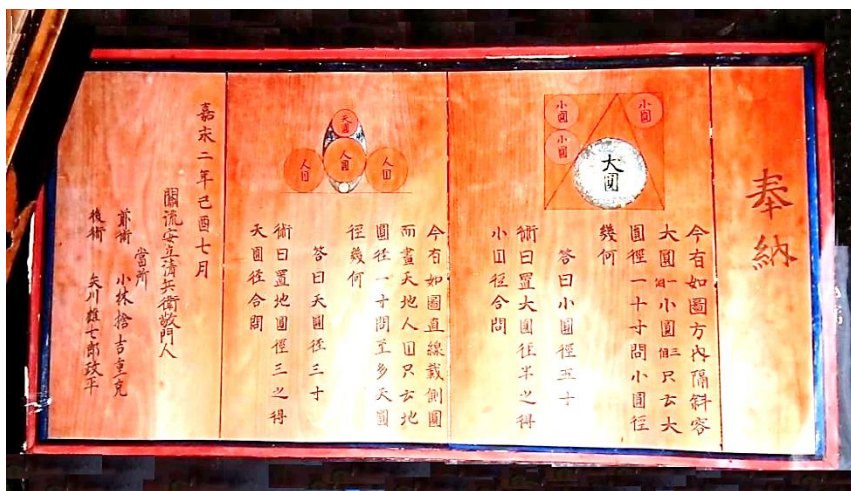 奉納
小圓
小圓
小圓
大圓
今有如圖方內隔斜容
大圓一個小圓三個只云大
圓徑一十寸問小圓徑
幾何
答曰小圓徑五寸
術曰置大圓徑半之得
小圓徑合問
天圓
人圓
人圓
人圓
今有如圖直線載側圓
而畫天地人圓只云地
圓徑一寸問至多天圓
徑幾何
答曰天圓徑三寸
術曰置地圓徑三之得
天圓徑合問
嘉永二年己酉七月
關流安立清兵衛敬門人
當所
前術 小林捨吉重克
後術 矢川雄七郎政平